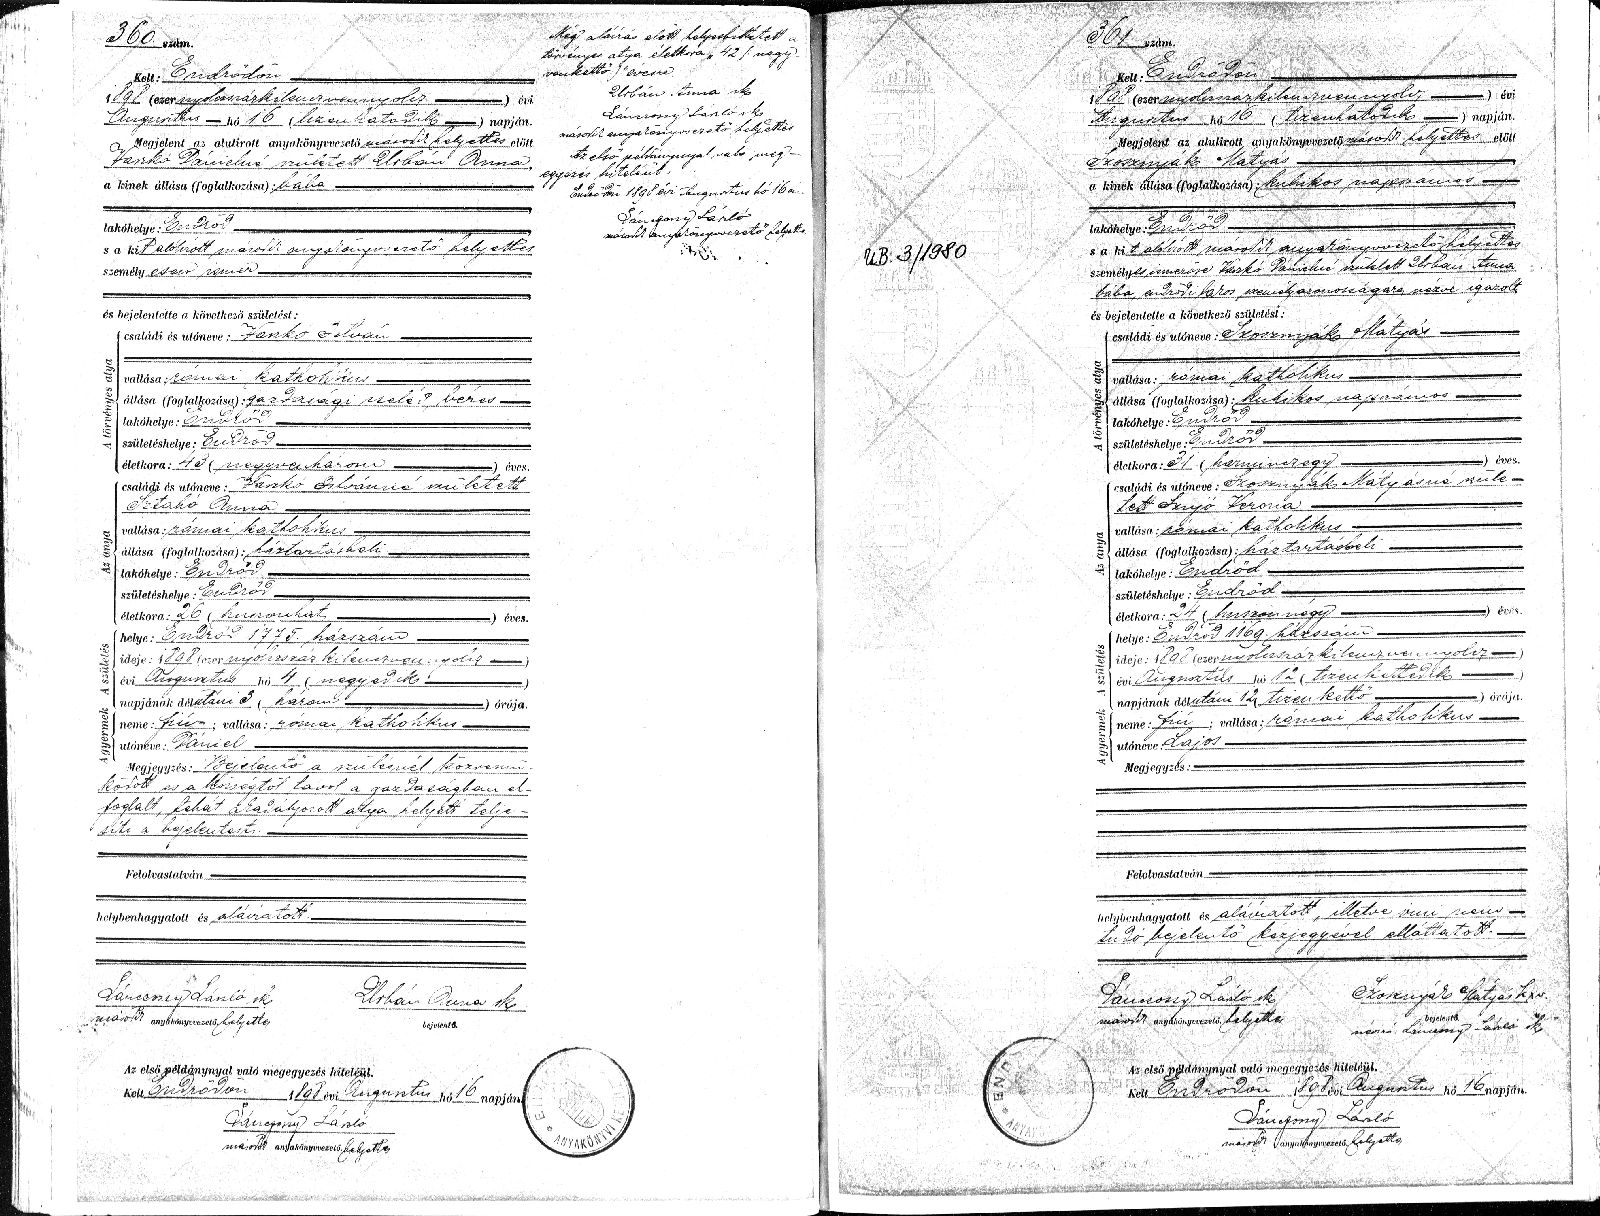 360 szám.
Kelt: Endrődön
1898 (ezer nyolcszázkilenczvennyolcz) évi
Augusztus hó 16 (tizenhatodik) napján.
Megjelent az alulirott anyakönyvvezető másodh. helyettes előtt
Jankó Dánielné született Urbán Anna
a kinek állása (foglalkozása): bába
lakóhelye: Endrőd
s a kit alulirott másodh. anyakönyvvezető helyettes
személyesen ismer
és bejelentette a következő születést:
A törvényes atya
családi és utóneve: Jankó István
vallása: római katholikus
állása (foglalkozása): gazdasági cseléd, béres
lakóhelye: Endrőd
születéshelye: Endrőd
életkora: 43 (negyvenhárom) éves.
Az anya
családi és utóneve: Jankó Istvánné született
Sztahó Anna
vallása: római katholikus
állása (foglalkozása): háztartásbeli
lakóhelye: Endrőd
születéshelye: Endrőd
életkora: 26 (huszonhat) éves.
A születés
helye: Endrőd 1775. házszám
ideje: 1898 (ezer nyolcszázkilenczvennyolcz)
évi Augusztus hó 4 (negyedik)
napjának délutáni 3 (három) órája.
A gyermek
neme: fiú; vallása: római katholikus
utóneve: Dániel
Megjegyzés: Bejelentő a szülésnél közremű-
ködött és a községtől távol a gazdaságban el-
foglalt, tehát akadályozott atya helyett telje-
síti a bejelentést.
Felolvastatván
helybenhagyatott és aláiratott.
László sk Urbán Anna sk
másodh. anyakönyvvezető helyettes bejelentő.
Az első példánynyal való megegyezés hiteléül.
Kelt Endrődön 1898 évi Augusztus hó 16 napján.
László
másodh. anyakönyvvezető helyettes
ANYAKÖNYVI
Még aláirás előtt helyesbittetett a
törvényes atya életkora „42 (negy-
venkettő)" évesre
Urbán Anna sk
László sk
másodh. anyakönyvvezető helyettes
Az első példánynyal való meg-
egyezés hiteléül.
Endrődön 1898 évi Augusztus hó 16 án
László
másodh. anyakönyvvezető helyettes
U.B. 3/1980
361 szám.
Kelt: Endrődön
1898 (ezer nyolcszázkilenczvennyolcz) évi
Augusztus hó 16 (tizenhatodik) napján.
Megjelent az alulirott anyakönyvvezető másodh. helyettes előtt
Szosznyák Mátyás
a kinek állása (foglalkozása): kubikos napszámos
lakóhelye: Endrőd
s a kit alulirott másodh. anyakönyvvezető helyettes
személyes ismerőse Jankó Dánielné született Urbán Anna
bába, endrődi lakos személyazonosságára nézve igazolt
és bejelentette a következő születést:
A törvényes atya
családi és utóneve: Szosznyák Mátyás
vallása: római katholikus
állása (foglalkozása): kubikos napszámos
lakóhelye: Endrőd
születéshelye: Endrőd
életkora: 31 (harminczegy) éves.
Az anya
családi és utóneve: Szosznyák Mátyásné szüle-
tett Verona
vallása: római katholikus
állása (foglalkozása): háztartásbeli
lakóhelye: Endrőd
születéshelye: Endrőd
életkora: 24 (huszonnégy) éves.
A születés
helye: Endrőd 1169. házszám
ideje: 1898 (ezer nyolcszázkilenczvennyolcz)
évi Augusztus hó 12 (tizenkettedik)
napjának délutáni 12 (tizenkettő) órája.
A gyermek
neme: fiú; vallása: római katholikus
utóneve Lajos
Megjegyzés:
Felolvastatván
helybenhagyatott és aláiratott, illetve irni nem
tudó bejelentő kézjegyével elláttatott.
László sk Szosznyák Mátyás
másodh. anyakönyvvezető helyettes bejelentő.
László sk
Az első példánynyal való megegyezés hiteléül.
Kelt Endrődön 1898 évi Augusztus hó 16 napján.
László
másodh. anyakönyvvezető helyettes